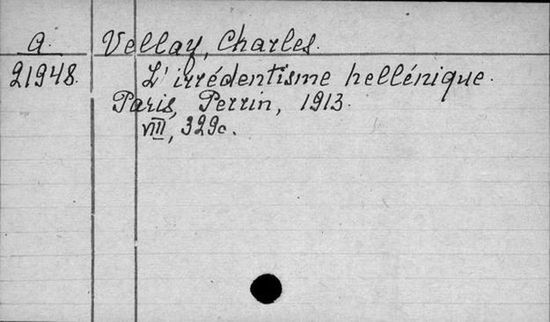 A. Vellay, Charles.
21948. L'irrédentisme hellénique.
Paris, Perrin, 1913.
VIII, 329c.